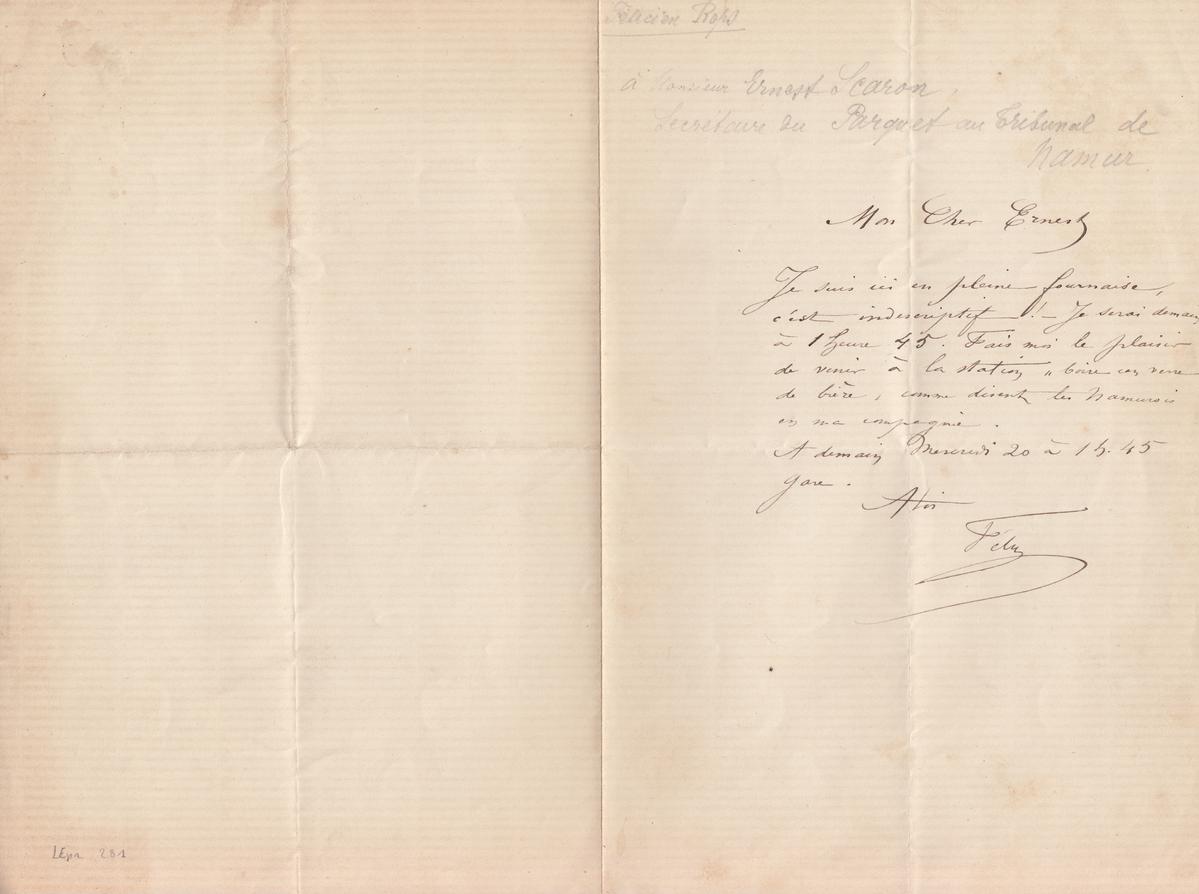 Félicien Rops
à Monsieur Ernest Scaron,
Secrétaire du Parquet au Tribunal de
Namur.
Mon Cher Ernest
Je suis ici en pleine fournaise,
c'est indescriptif !! – Je serai demain
à 1 heure 45. Fais moi le plaisir
de venir à la station „ boire un verre
de bière, comme disent les Namurois
en ma compagnie.
A demain Mercredi 20 à 1 h. 45
gare.
Atoi
Fély
LEpr 281